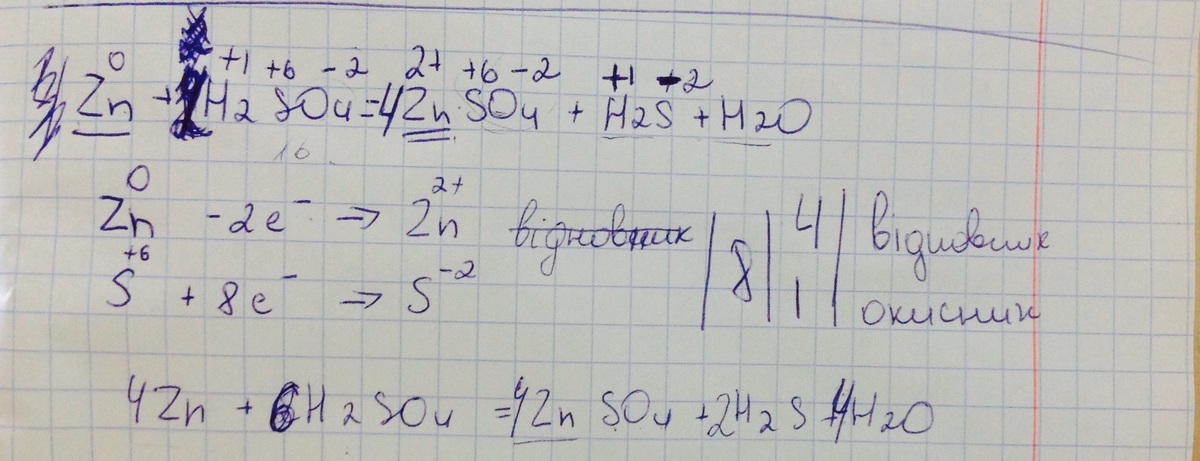 б) Zn⁰ + H₂⁺¹S⁺⁶O₄⁻² = 4Zn²⁺S⁺⁶O₄⁻² + H₂⁺¹S⁻² + H₂O
16
Zn⁰ -2e⁻ → Zn²⁺ відновник | 8 | 4 | відновник
S⁺⁶ + 8e⁻ → S⁻² | 1 | окисник
4Zn + 6H₂SO₄ = 4ZnSO₄ + 2H₂S + 4H₂O